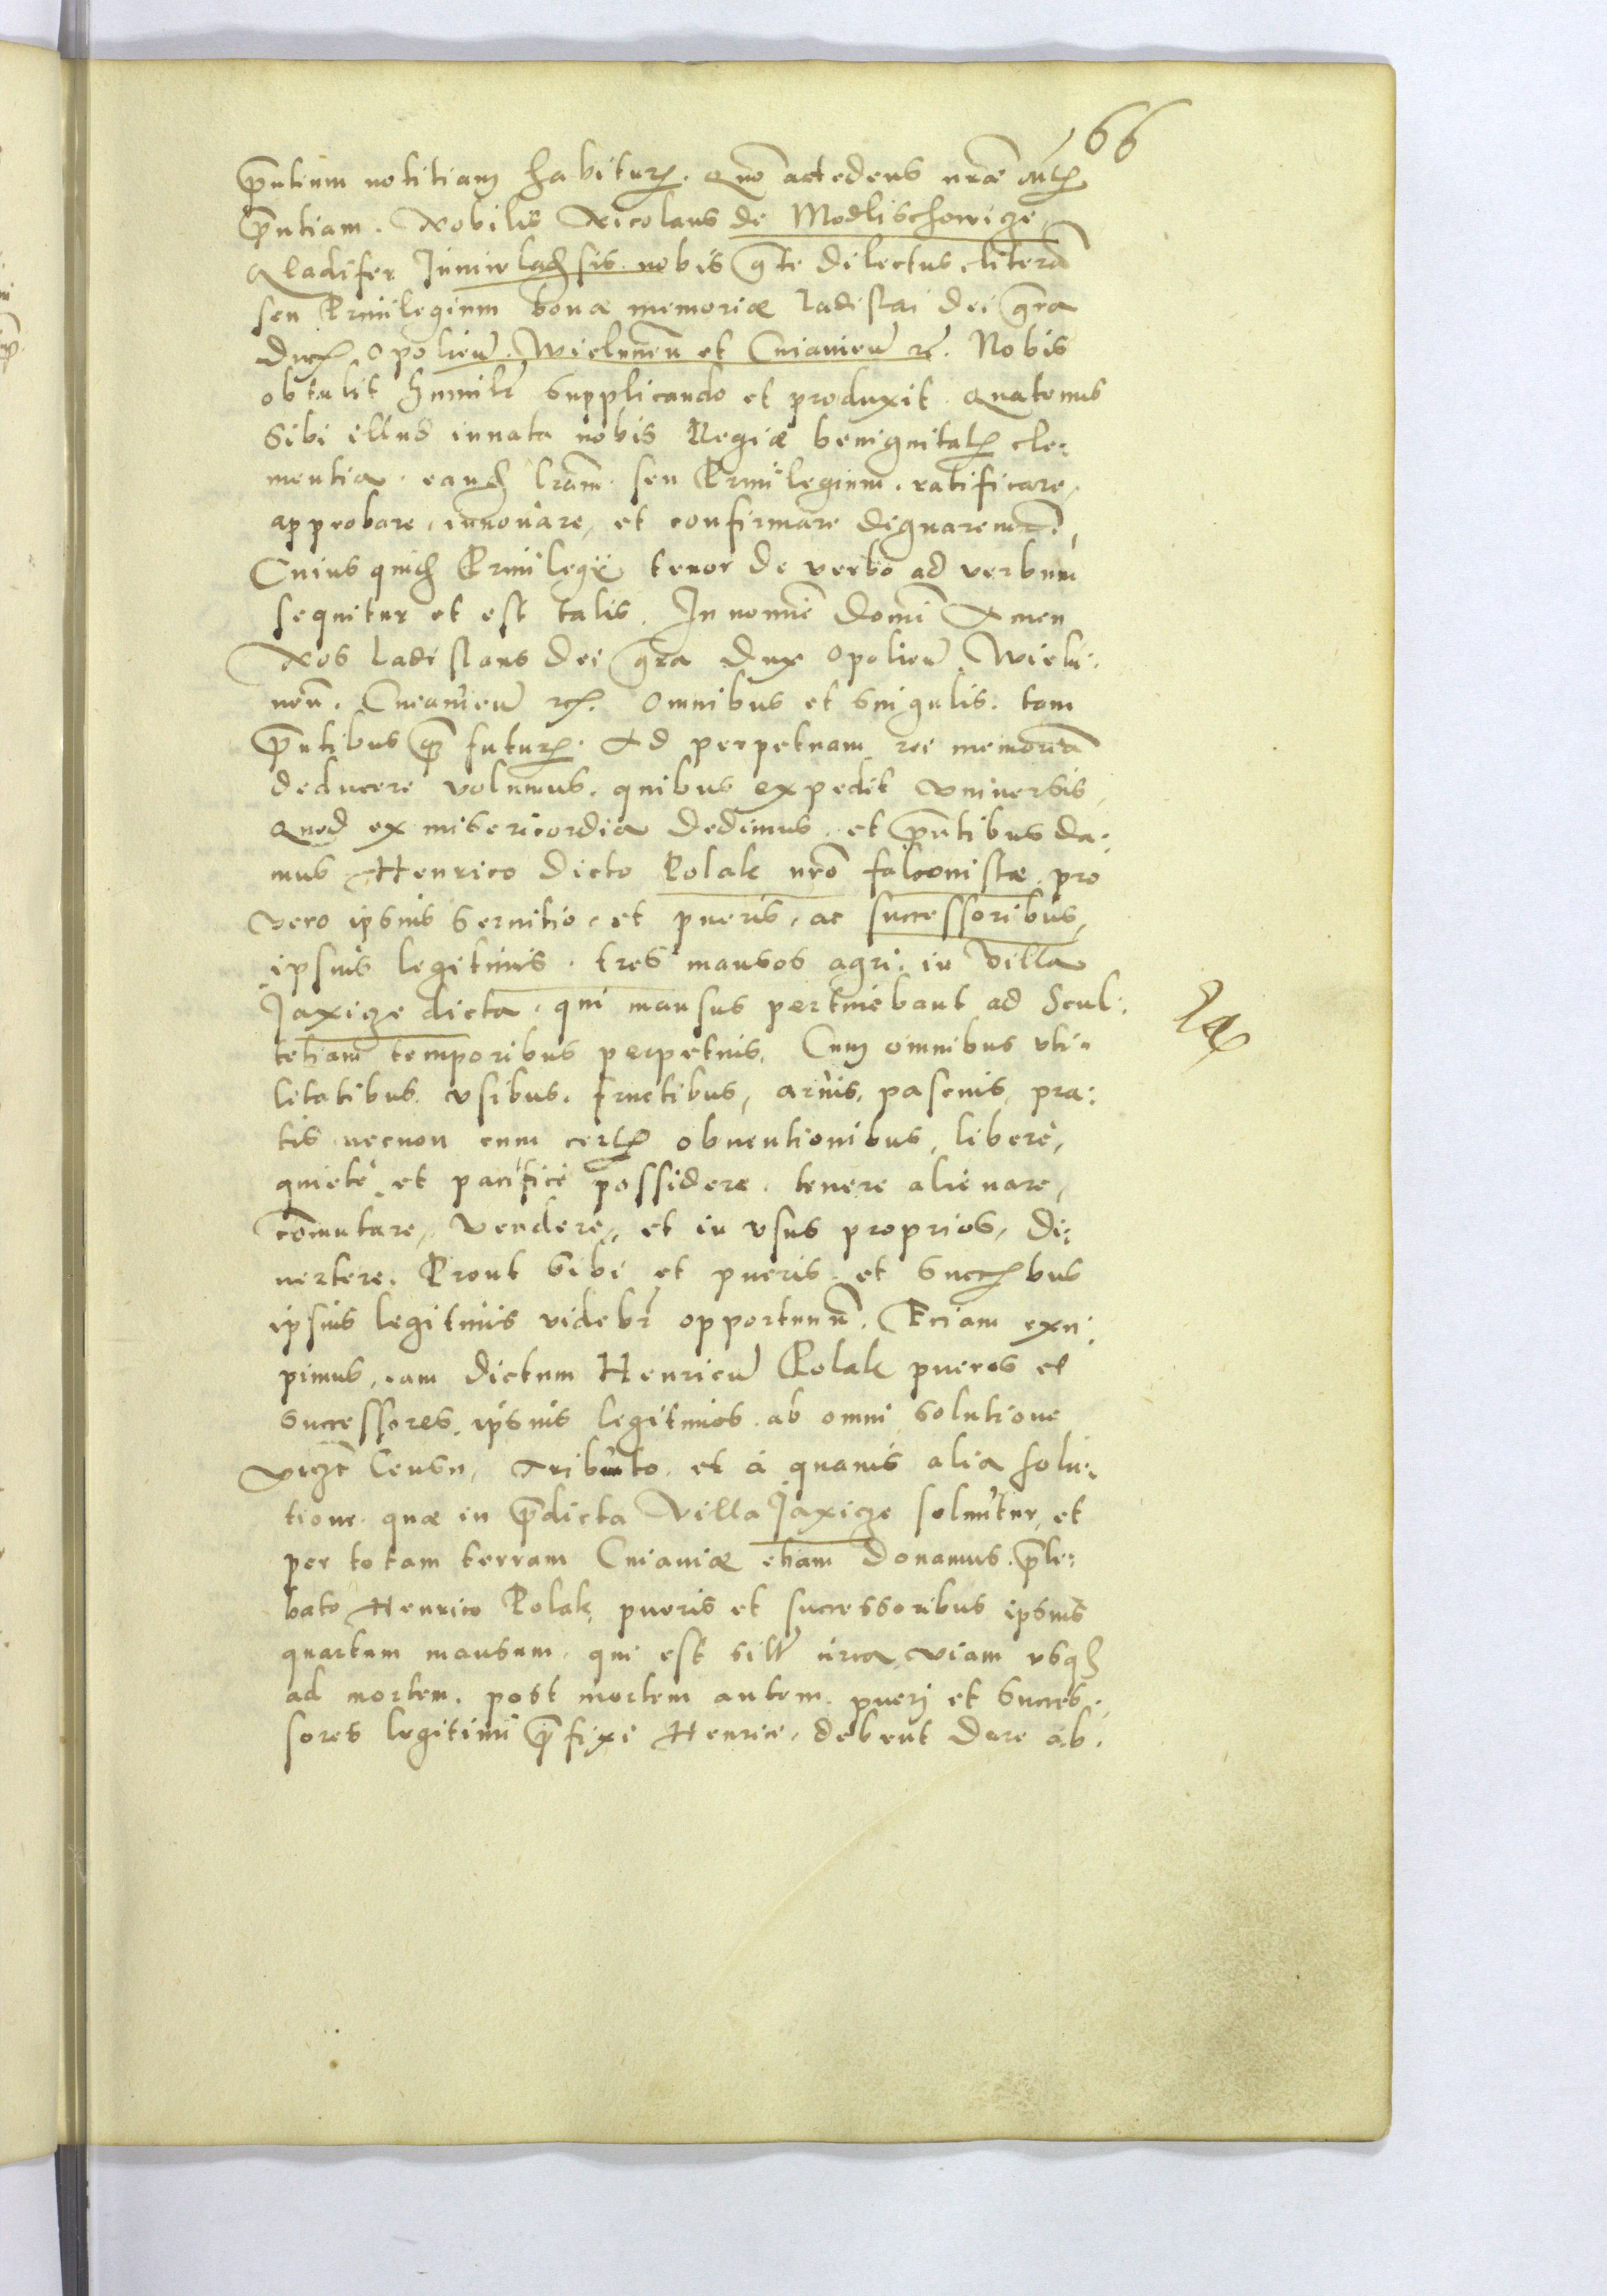 66
p̄ntium notitiam habiturꝭ. Quō accedens nr̄ae
p̄ntiam. Nobilis Nicolaus de Modlischowicze,
Gladifer Juniwladꝭsis nobis gr̄te dilectus literā
seu Priuilegium bonæ memoriæ Ladislai dei gr̄a
Ducꝭ Opolień. Wielunēn et Cuiauień ꝛc̄. Nobis
obtulit humilr̄ supplicando et produxit. Quatenus
Sibi illud innata nobis Regiæ benignitatꝭ cle:
mentia. eandꝭ lr̄am. seu Priuilegium. ratificare,
approbare, innouare, et confirmare dignaremur̄,
Cuius quidꝭ Priuilegii tenor de verbo ad verbum
sequitur et est talis. In nomīe Domī Amen
Nos Ladislaus Dei gr̄a Dux Opolień Wielu:
nēn. Cuiauień ꝛcꝭ. Omnibus et singulis. tam
p̄ntibus q̄ꝫ futurꝭ. Ad perpetuam rei memoriā
deducere volumus. quibus expedit vniuersis,
Quod ex misericordia dedimus. et p̄ntibus da:
mus Henrico dicto Polak nr̄o falconistæ, pro
vero ipsius seruitio, et pueris, ac successoribus,
ipsius legitimis. tres mansos agri. in villa
Jaxicze dicta, qui mansus pertinēbant ad Scul:
tetiam temporibus perpetuis. Cum omnibus vti:
litatibus, vsibus. fructibus, aruis, pascuis, pra:
tis necnon cum certꝭ obuentionibus, liberè,
quietè et pacificè possidere. tenere alienare,
com̄utare, vendere, et in vsus proprios, di:
uertere. Prout sibi et pueris. et Succꝭbus
ipsius legitimis videbr̄ opportunū. Eciam exci:
pimus, iam dictum Henricū Polak pueros et
successores, ipsius legitimos. ab omni solutione
vicꝫt Censu, tributo. et à quauis alia solu:
tione. quæ in p̄dicta villa Jaxicze soluūtur, et
per totam terram Cuiauiæ etiam donamus. p̄li:
bato Henrico Polak, pueris et successoribus ipsius
quartum mansum. qui est silr̄ circa viam vsqꝫ
ad mortem. post mortem autem. puerj et Succes:
sores legitimi p̄fixi Henrici, debent dare ab.